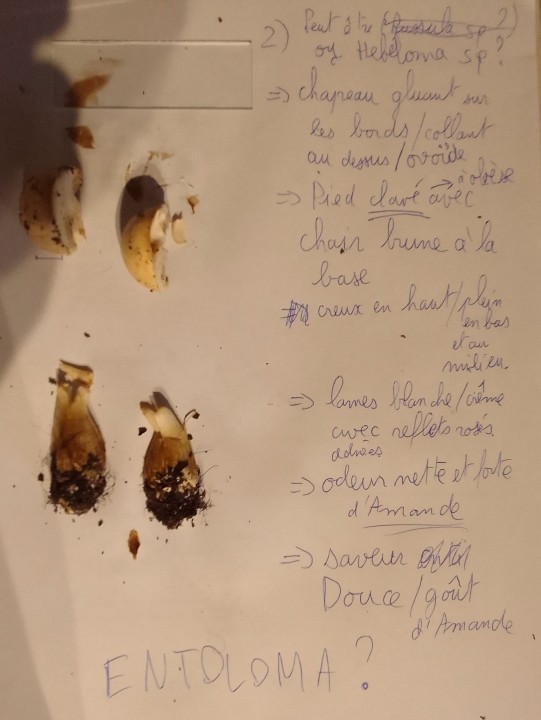 2) Peut être (Russula sp ?)
ou Hebeloma sp ?
=> chapeau gluant sur
les bords / collant
au dessus / ovoïde
=> Pied clavé → à obèse
avec
chair brune à la
base
creux en haut / plein
en bas
et au
milieu.
=> lames blanche / crême
avec reflets rosés
adnées
=> odeur nette et forte
d'Amande
=> saveur
Douce / goût
d'Amande
ENTOLOMA ?